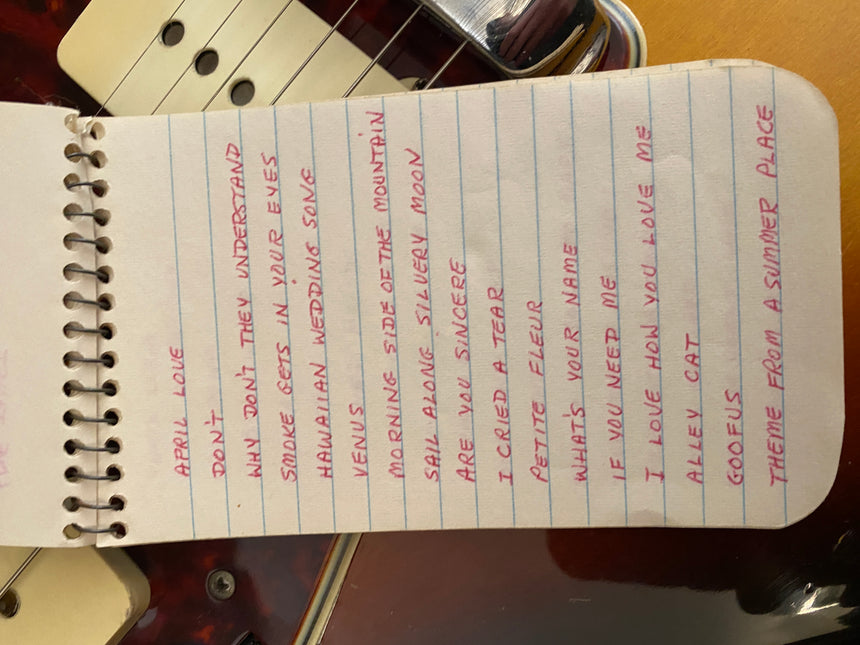 APRIL LOVE
DON'T
WHY DON'T THEY UNDERSTAND
SMOKE GETS IN YOUR EYES
HAWAIIAN WEDDING SONG
VENUS
MORNING SIDE OF THE MOUNTAIN
SAIL ALONG SILVERY MOON
ARE YOU SINCERE
I CRIED A TEAR
PETITE FLEUR
WHAT'S YOUR NAME
IF YOU NEED ME
I LOVE HOW YOU LOVE ME
ALLEY CAT
GOOFUS
THEME FROM A SUMMER PLACE